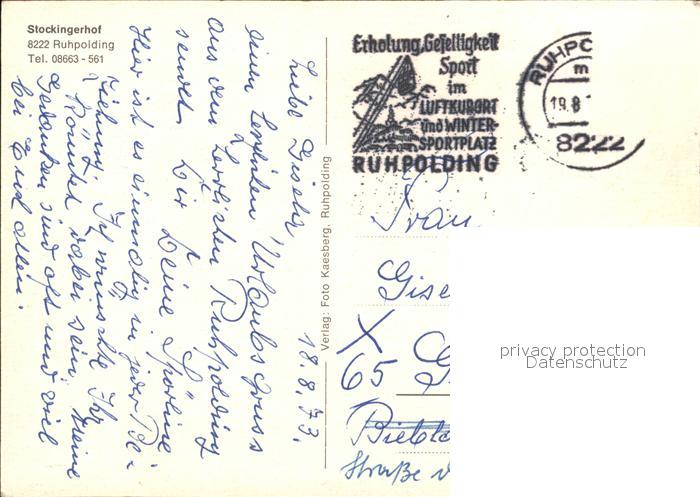 Stockingerhof
8222 Ruhpolding
Tel. 08663 - 561
18.8.73.
Liebe Gisela,
einen herzlichen Urlaubsgruss
aus dem herrlichen Ruhpolding
sendet Dir Deine
Hier ist es einmalig in jeder Be-
ziehung. Ich wünschte Ihr
könntet dabei sein. Meine
Gedanken sind oft und viel
bei Euch allen.
Verlag: Foto Kaesberg, Ruhpolding
Erholung, Geselligkeit
Sport
im
LUFTKURORT
und WINTER-
SPORTPLATZ
RUHPOLDING
RUHPO
m
19.8
8222
Frau
Gise
X
65
Straße
privacy protection
Datenschutz